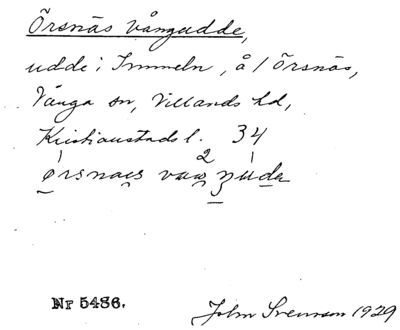 Örsnäs Vångudde,
udde i Immeln, å / Örsnäs,
Vånga sn, Villands hd,
Kristianstads l. 34
Nr 5486.
John Svensson 1929